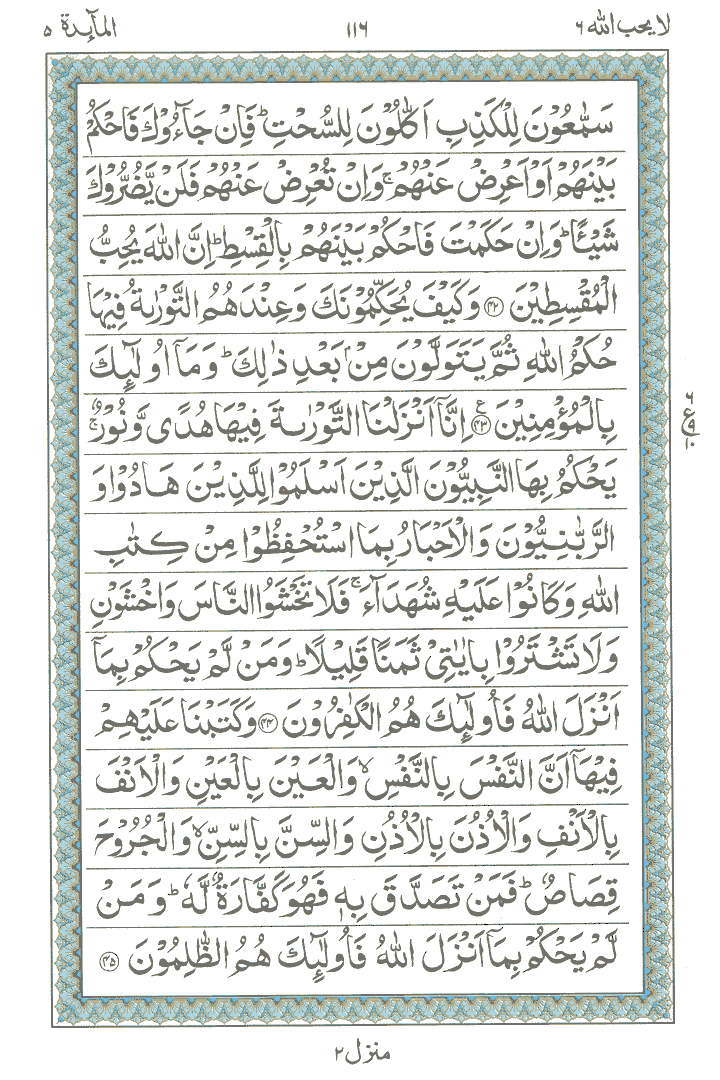 لا یحب اللہ ۶ ۱۱۶ المآبدة ۵
سَمّٰعُوۡنَ لِلۡكَذِبِ اَكّٰلُوۡنَ لِلسُّحۡتِ‌ؕ فَاِنۡ جَآءُوۡكَ فَاحۡكُمۡ
بَيۡنَهُمۡ اَوۡ اَعۡرِضۡ عَنۡهُمۡ‌ۚ وَاِنۡ تُعۡرِضۡ عَنۡهُمۡ فَلَنۡ يَّضُرُّوۡكَ
شَيۡـــًٔا‌ؕ وَاِنۡ حَكَمۡتَ فَاحۡكُمۡ بَيۡنَهُمۡ بِالۡقِسۡطِ‌ؕ اِنَّ اللّٰهَ يُحِبُّ
الۡمُقۡسِطِيۡنَ ﴿۴۲﴾ وَكَيۡفَ يُحَكِّمُوۡنَكَ وَعِنۡدَهُمُ التَّوۡرٰٮةُ فِيۡهَا
حُكۡمُ اللّٰهِ ثُمَّ يَتَوَلَّوۡنَ مِنۡۢ بَعۡدِ ذٰلِكَ‌ؕ وَمَاۤ اُولٰٓٮِٕكَ
بِالۡمُؤۡمِنِيۡنَ ﴿۴۳﴾ ع اِنَّاۤ اَنۡزَلۡنَا التَّوۡرٰٮةَ فِيۡهَا هُدًى وَّنُوۡرٌ‌ۚ
۶ ع ۹ ۱۰
يَحۡكُمُ بِهَا النَّبِيُّوۡنَ الَّذِيۡنَ اَسۡلَمُوۡا لِلَّذِيۡنَ هَادُوۡا وَ
الرَّبّٰنِيُّوۡنَ وَالۡاَحۡبَارُ بِمَا اسۡتُحۡفِظُوۡا مِنۡ كِتٰبِ
اللّٰهِ وَكَانُوۡا عَلَيۡهِ شُهَدَآءَ‌ۚ فَلَا تَخۡشَوُا النَّاسَ وَاخۡشَوۡنِ
وَلَا تَشۡتَرُوۡا بِاٰيٰتِىۡ ثَمَنًا قَلِيۡلًا‌ؕ وَمَنۡ لَّمۡ يَحۡكُمۡ بِمَاۤ
اَنۡزَلَ اللّٰهُ فَاُولٰٓٮِٕكَ هُمُ الۡكٰفِرُوۡنَ ﴿۴۴﴾ وَكَتَبۡنَا عَلَيۡهِمۡ
فِيۡهَاۤ اَنَّ النَّفۡسَ بِالنَّفۡسِۙ وَالۡعَيۡنَ بِالۡعَيۡنِ وَالۡاَنۡفَ
بِالۡاَنۡفِ وَالۡاُذُنَ بِالۡاُذُنِ وَالسِّنَّ بِالسِّنِّۙ وَالۡجُرُوۡحَ
قِصَاصٌ‌ؕ فَمَنۡ تَصَدَّقَ بِهٖ فَهُوَ كَفَّارَةٌ لَّهٗ‌ؕ وَمَنۡ
لَّمۡ يَحۡكُمۡ بِمَاۤ اَنۡزَلَ اللّٰهُ فَاُولٰٓٮِٕكَ هُمُ الظّٰلِمُوۡنَ ﴿۴۵﴾
منزل ۲